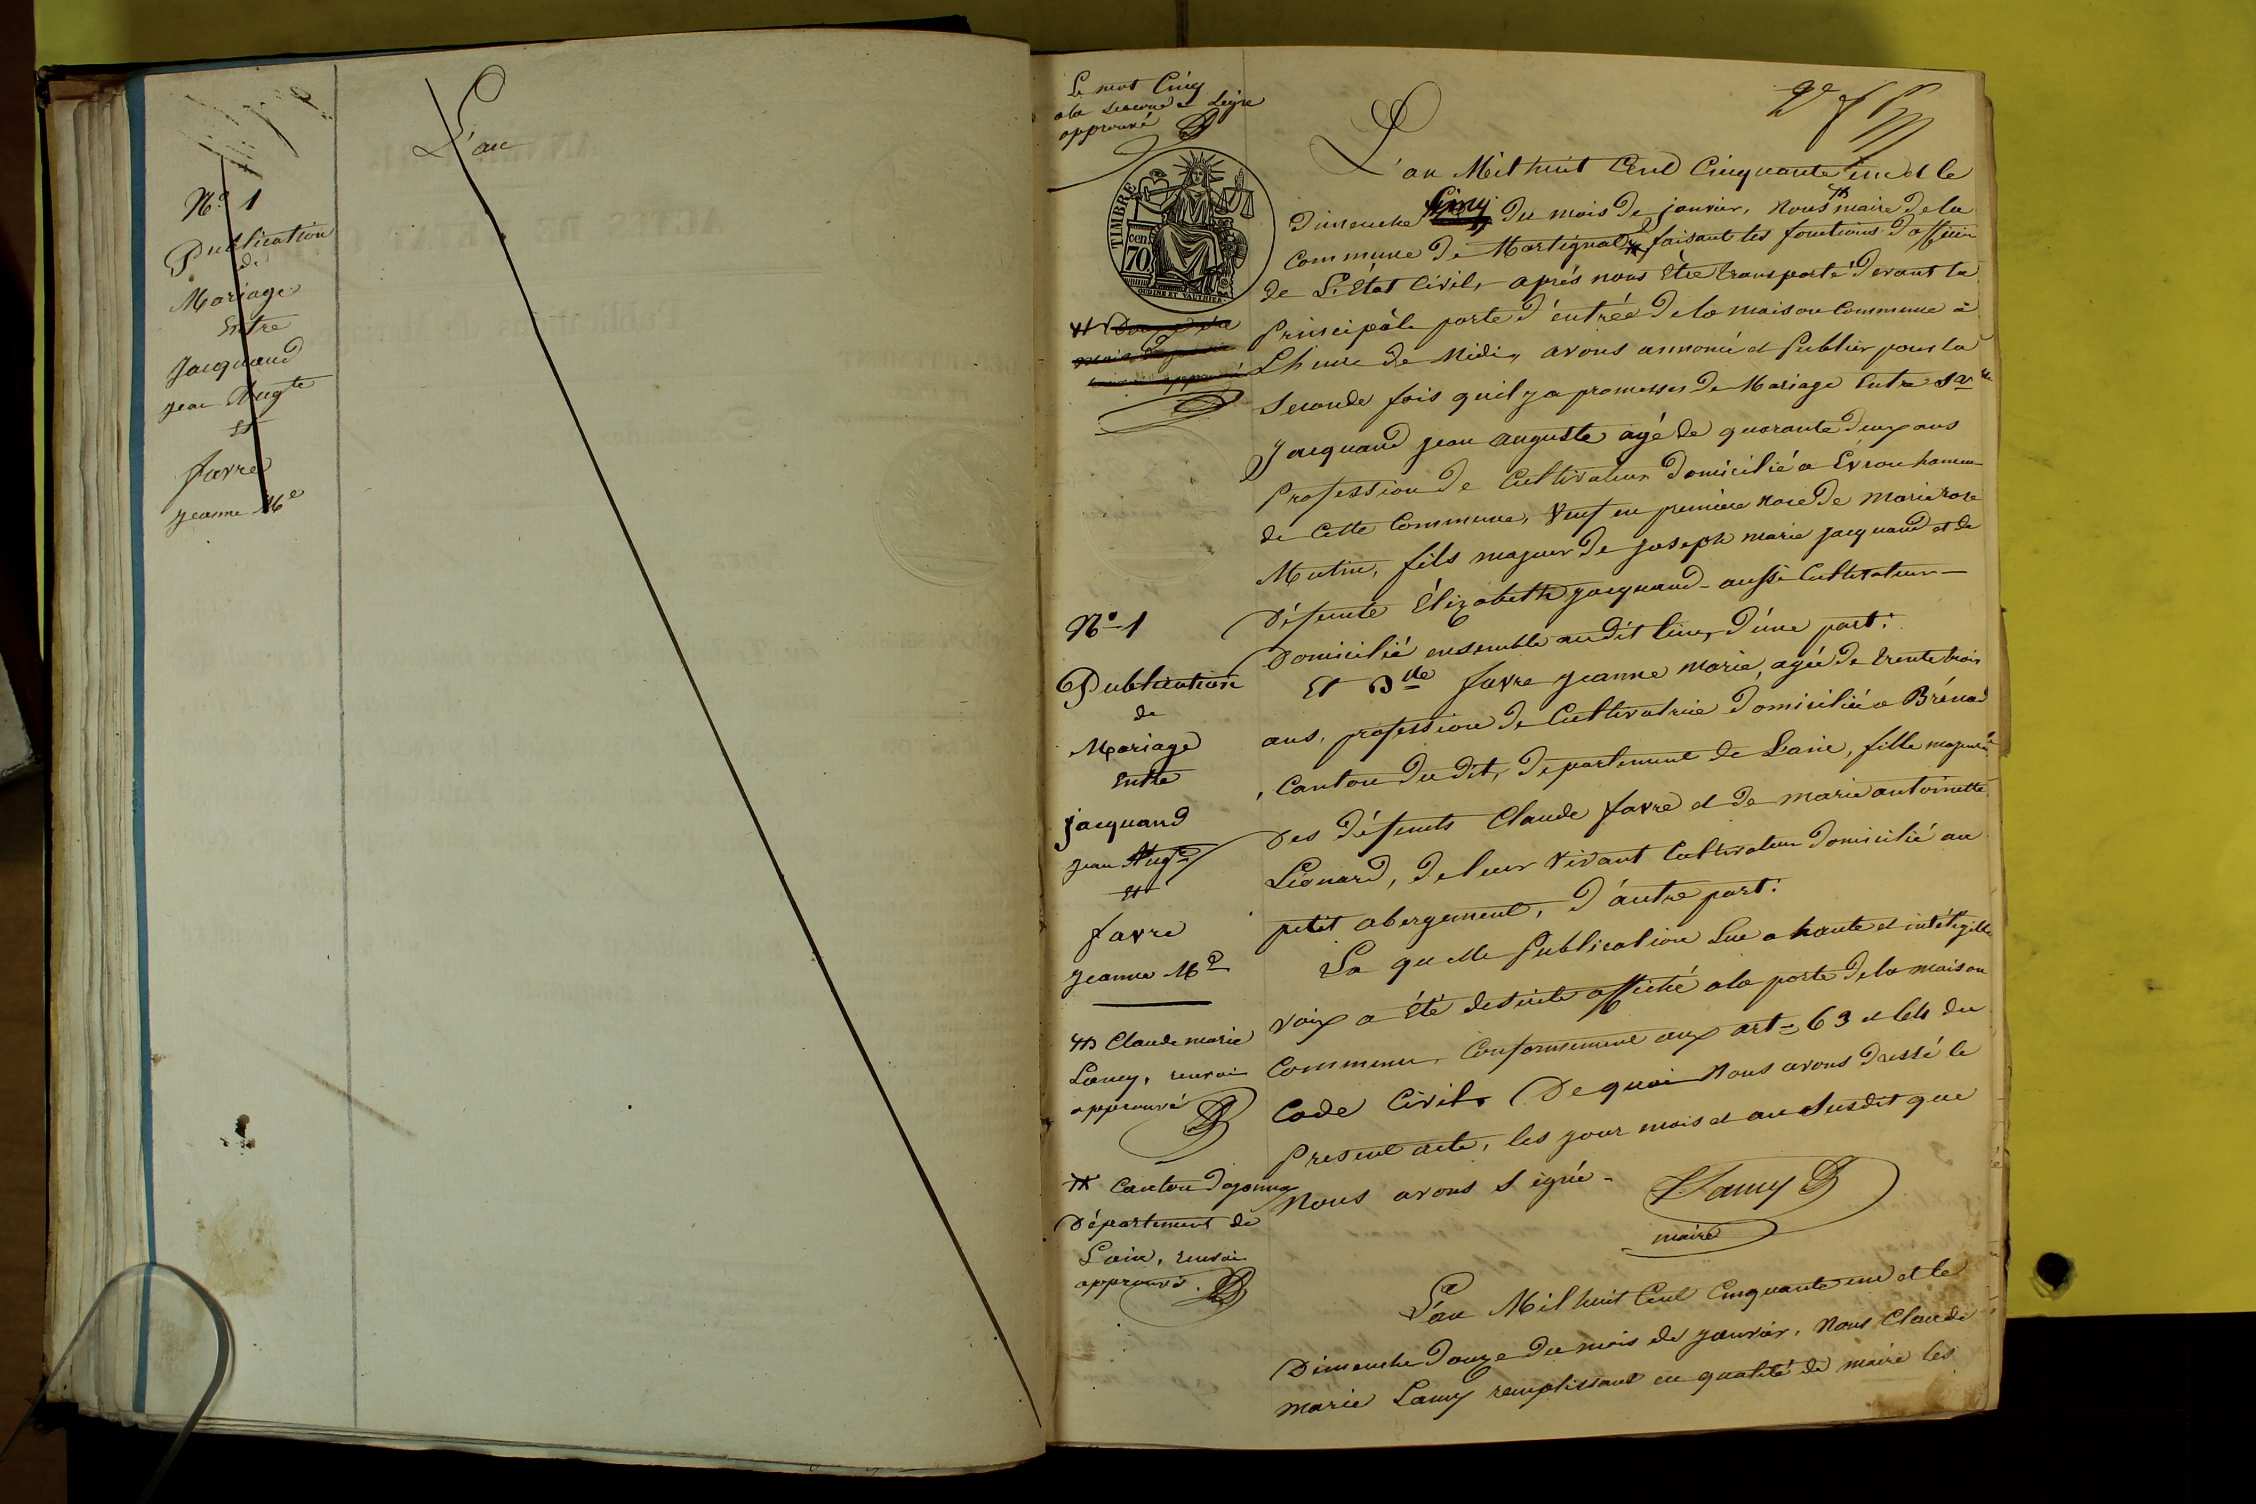 N.o 1
Publication
de
Mariage
Entre
Jacquand
jean Augte
Et
favre
jeanne Me
L'an
Le mot Cinq
a la seconde Ligne
approuvé
TIMBRE
cen
70
OUDINÉ ET VAUTHIER
2e f
L'an Mil huit Cent Cinquante un et le
dimenche Cinq du mois de janvier, Nous maire de la
Commune de Martignat, faisant les fonctions d'officier
de L'État Civil, après nous être transporté devant la
Principâle porte d'entrée de la maison Commune à
L'heure de Midi, avons annoncé et Publier pour la
Seconde fois qu'il y a promesses de Mariage Entre Sr
Jacquand jean auguste agé de quarante deux ans
Profession de Cultivateur domicilié a Evron hameau
de Cette Commune, Veuf en première noce de Marie rose
Mutin, fils majeur de joseph marie jacquand et de
Défunte Élizabeth jacquand aussi Cultivateur
Domicilié ensemble audit lieu, d'une part.
Et Dlle favre jeanne marie, agée de trente trois
ans, profession de Cultivatrice domiciliée a Brénod
, Canton du dit, département de L'ain, fille majeure
des défunts Claude favre et de marie antoinette
Liénard, de leur Vivant Cultivateur domicilié au
petit abergement, d'autre part.
La quelle Publication Lue a haute et intéligible
voix a été de suite affiché a la porte de la maison
Commune, Conformement aux art= 63 et 64 du
Code Civil. De quoi Nous avons dressé le
Present acte, les jour mois et an Susdit que
Nous avons Signé.
Lamy
maire
N.o 1
Publication
de
Mariage
Entre
jacquand
jean Augte
Et
favre
jeanne Me
Claude marie
Lamy, renvoi
approuvé
Canton d'oyonnax
Département de
L'ain, renvoi
approuvé.
L'an Mil huit Cent Cinquante un et le
Dimenche douze du mois de janvier, Nous Claude
marie Lamy remplissant en qualité de maire les